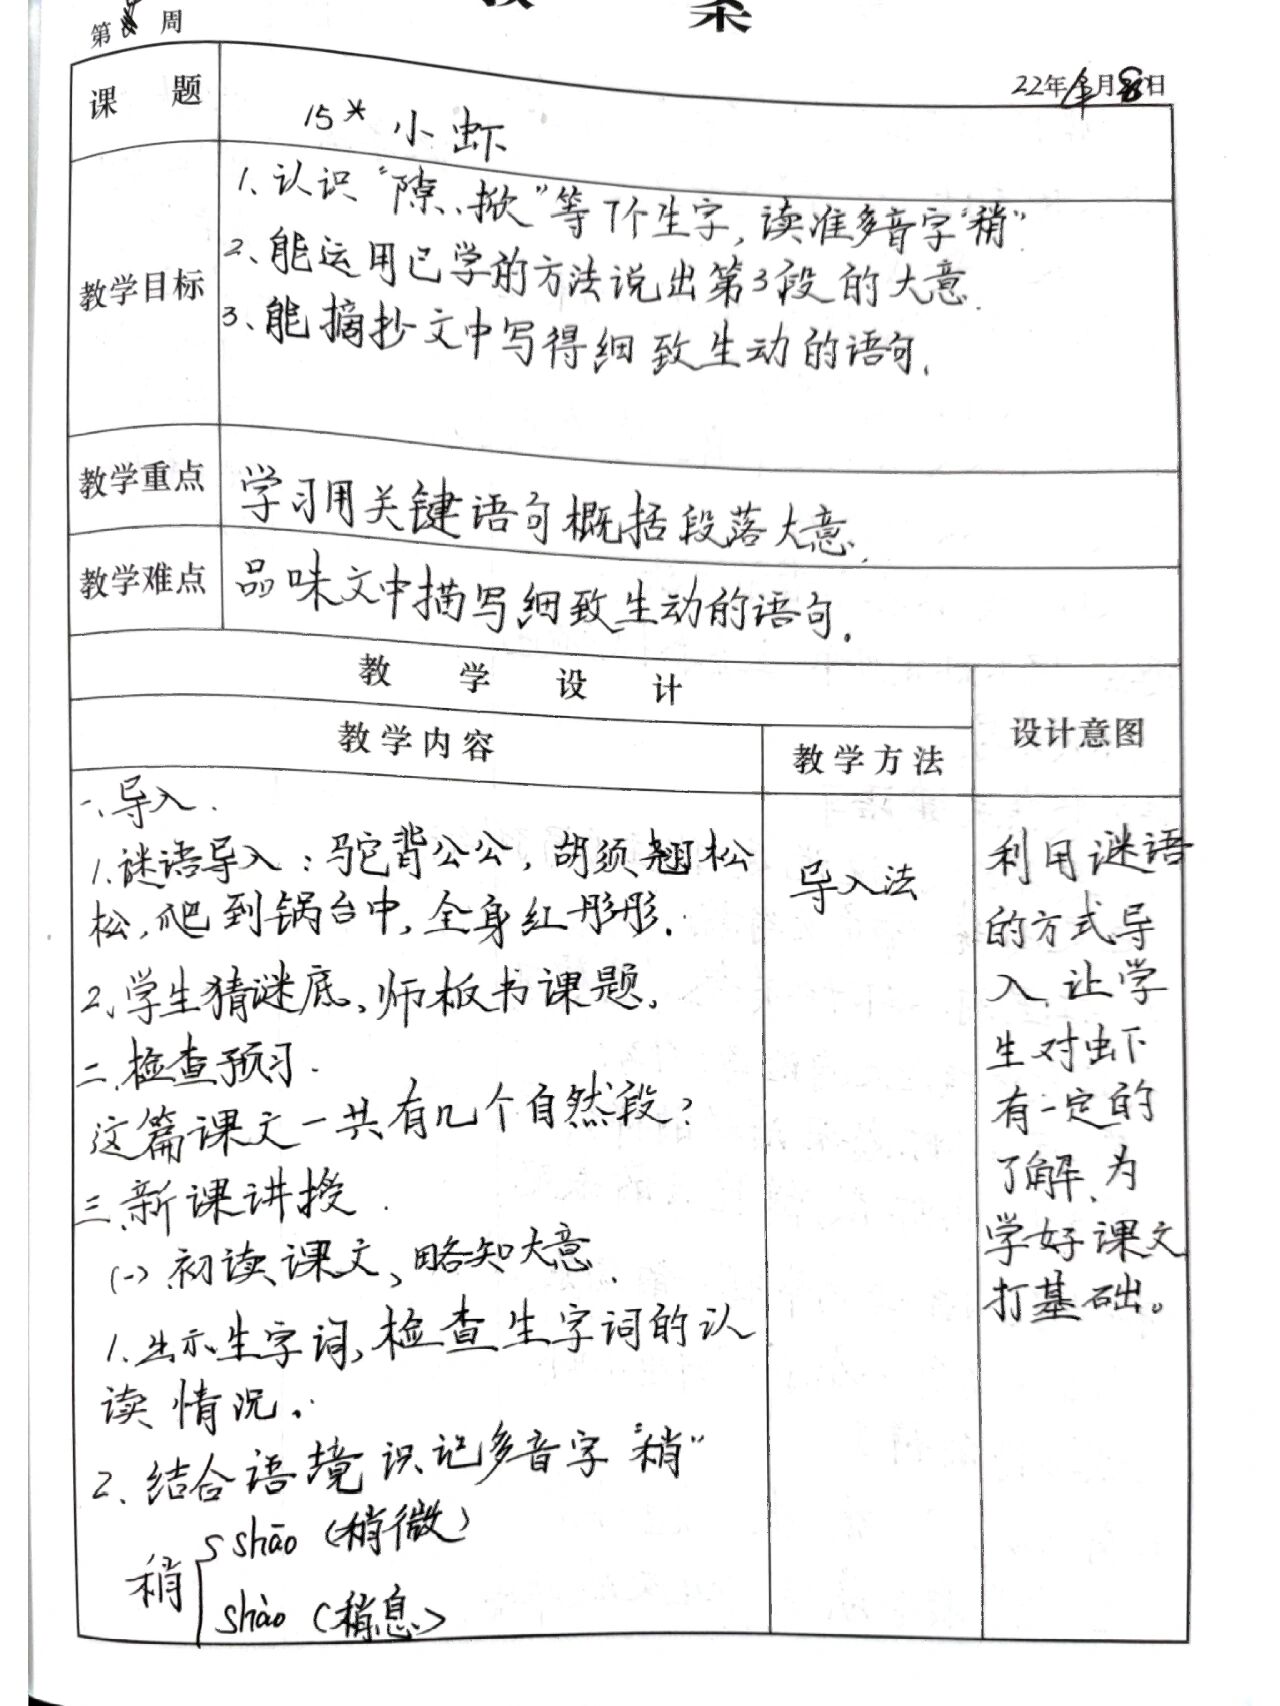 教 案
第 周
22年 月 8日
课 题
15* 小虾
教学目标
1、认识“隙、掀”等7个生字,读准多音字“稍”
2、能运用已学的方法说出第3段的大意.
3、能摘抄文中写得细致生动的语句.
教学重点
学习用关键语句概括段落大意.
教学难点
品味文中描写细致生动的语句.
教 学 设 计
设计意图
教学内容
教学方法
一、导入.
1.谜语导入:驼背公公,胡须翘松
松,爬到锅台中,全身红彤彤.
2、学生猜谜底,师板书课题.
二、检查预习.
这篇课文一共有几个自然段?
三、新课讲授.
(一)初读课文,略知大意.
1.出示生字词,检查生字词的认
读情况.
2、结合语境识记多音字“稍”
稍
shāo (稍微)
shào (稍息)
导入法
利用谜语
的方式导
入,让学
生对虾
有一定的
了解,为
学好课文
打基础。